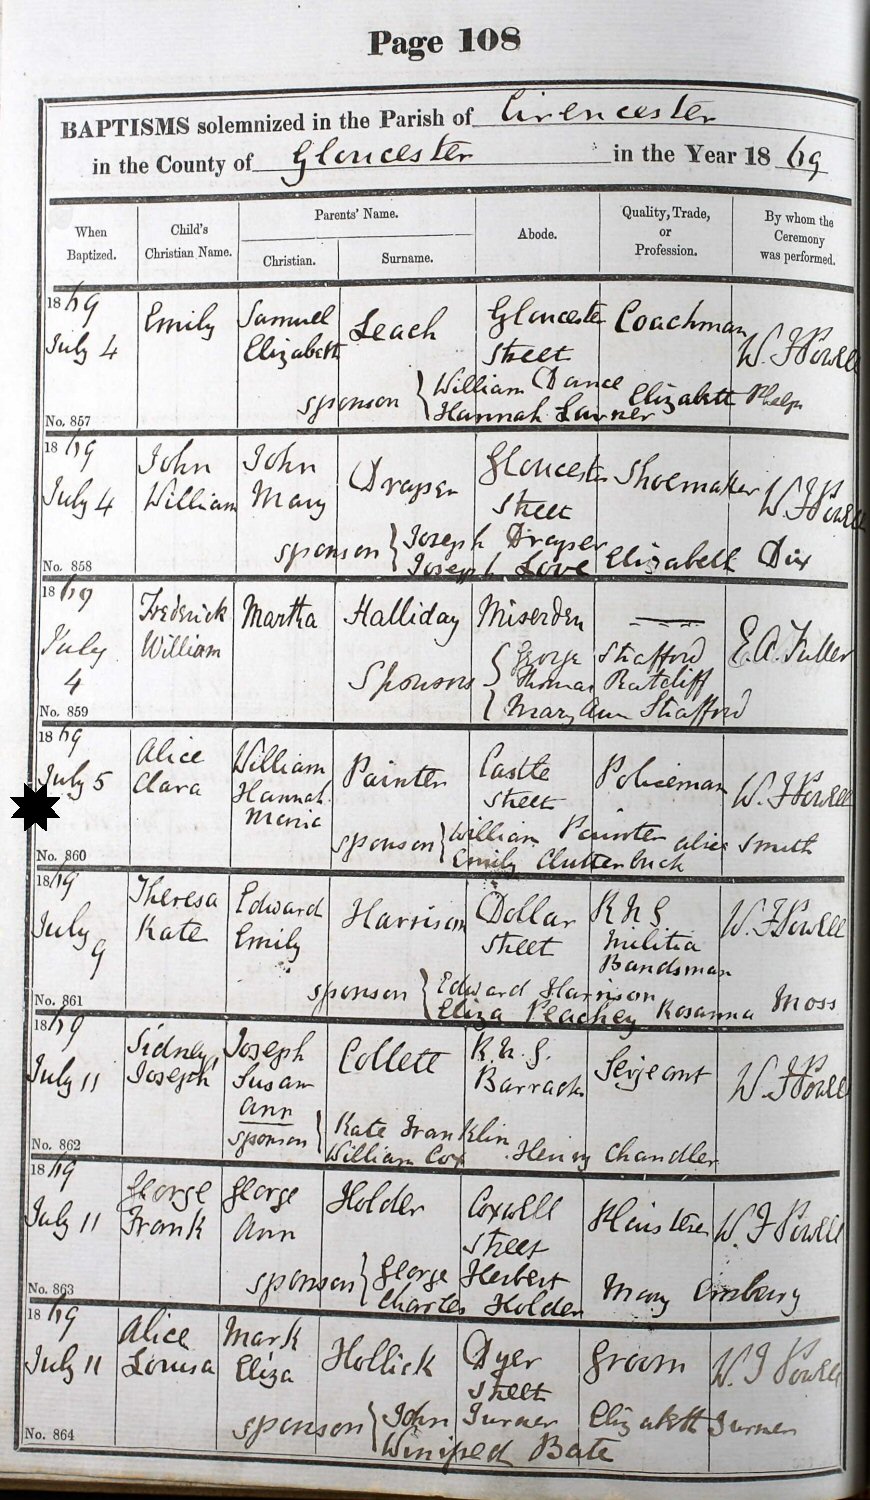 Page 108
BAPTISMS solemnized in the Parish of Cirencester
in the County of Gloucester in the Year 1869
When Baptized. Child's Christian Name. Parents' Name. Christian. Surname. Abode. Quality, Trade, or Profession. By whom the Ceremony was performed.
1869 Emily Samuel Leach Gloucester Coachman
July 4 Elizabeth Street W. F. Powell
sponson William Dance Elizabeth Phelps
No. 857 Hannah Turner
1869 John John Draper Gloucester Shoemaker
July 4 William Mary Street W F Powell
sponson Joseph Draper
No. 858 Joseph Love Elizabeth Dix
1869 Frederick Martha Halliday Miserden E.A. Fuller
July William
4 Sponsors George Strafford
Thomas Ratcliff
No. 859 Mary Ann Strafford
1869 Alice William Painter Castle Policeman
July 5 Clara Hannah Street W F Powell
Maria
sponson William Painter Alice Smith
No. 860 Emily Clutterbuck
1869 Theresa Edward Harrison Dollar R N G W. F Powell
July 9 Kate Emily Street Militia
Bandsman
sponson Edward Harrison
No. 861 Eliza Peachey Rosanna Moss
1869 Sidney Joseph Collett R. N. G. Serjeant
July 11 Joseph Susan Barracks W. F Powell
Ann
sponson Kate Franklin
No. 862 William Cox Henry Chandler
1869 George George Holder Coxwell Plaisterer
July 11 Frank Ann Street W. F Powell
sponson George Herbert Mary
No. 863 Charles Holder
1869 Alice Mark Hollick Dyer Groom
July 11 Louisa Eliza Street W. F Powell
sponson John Turner Elizabeth Turner
No. 864 Winifred Bate